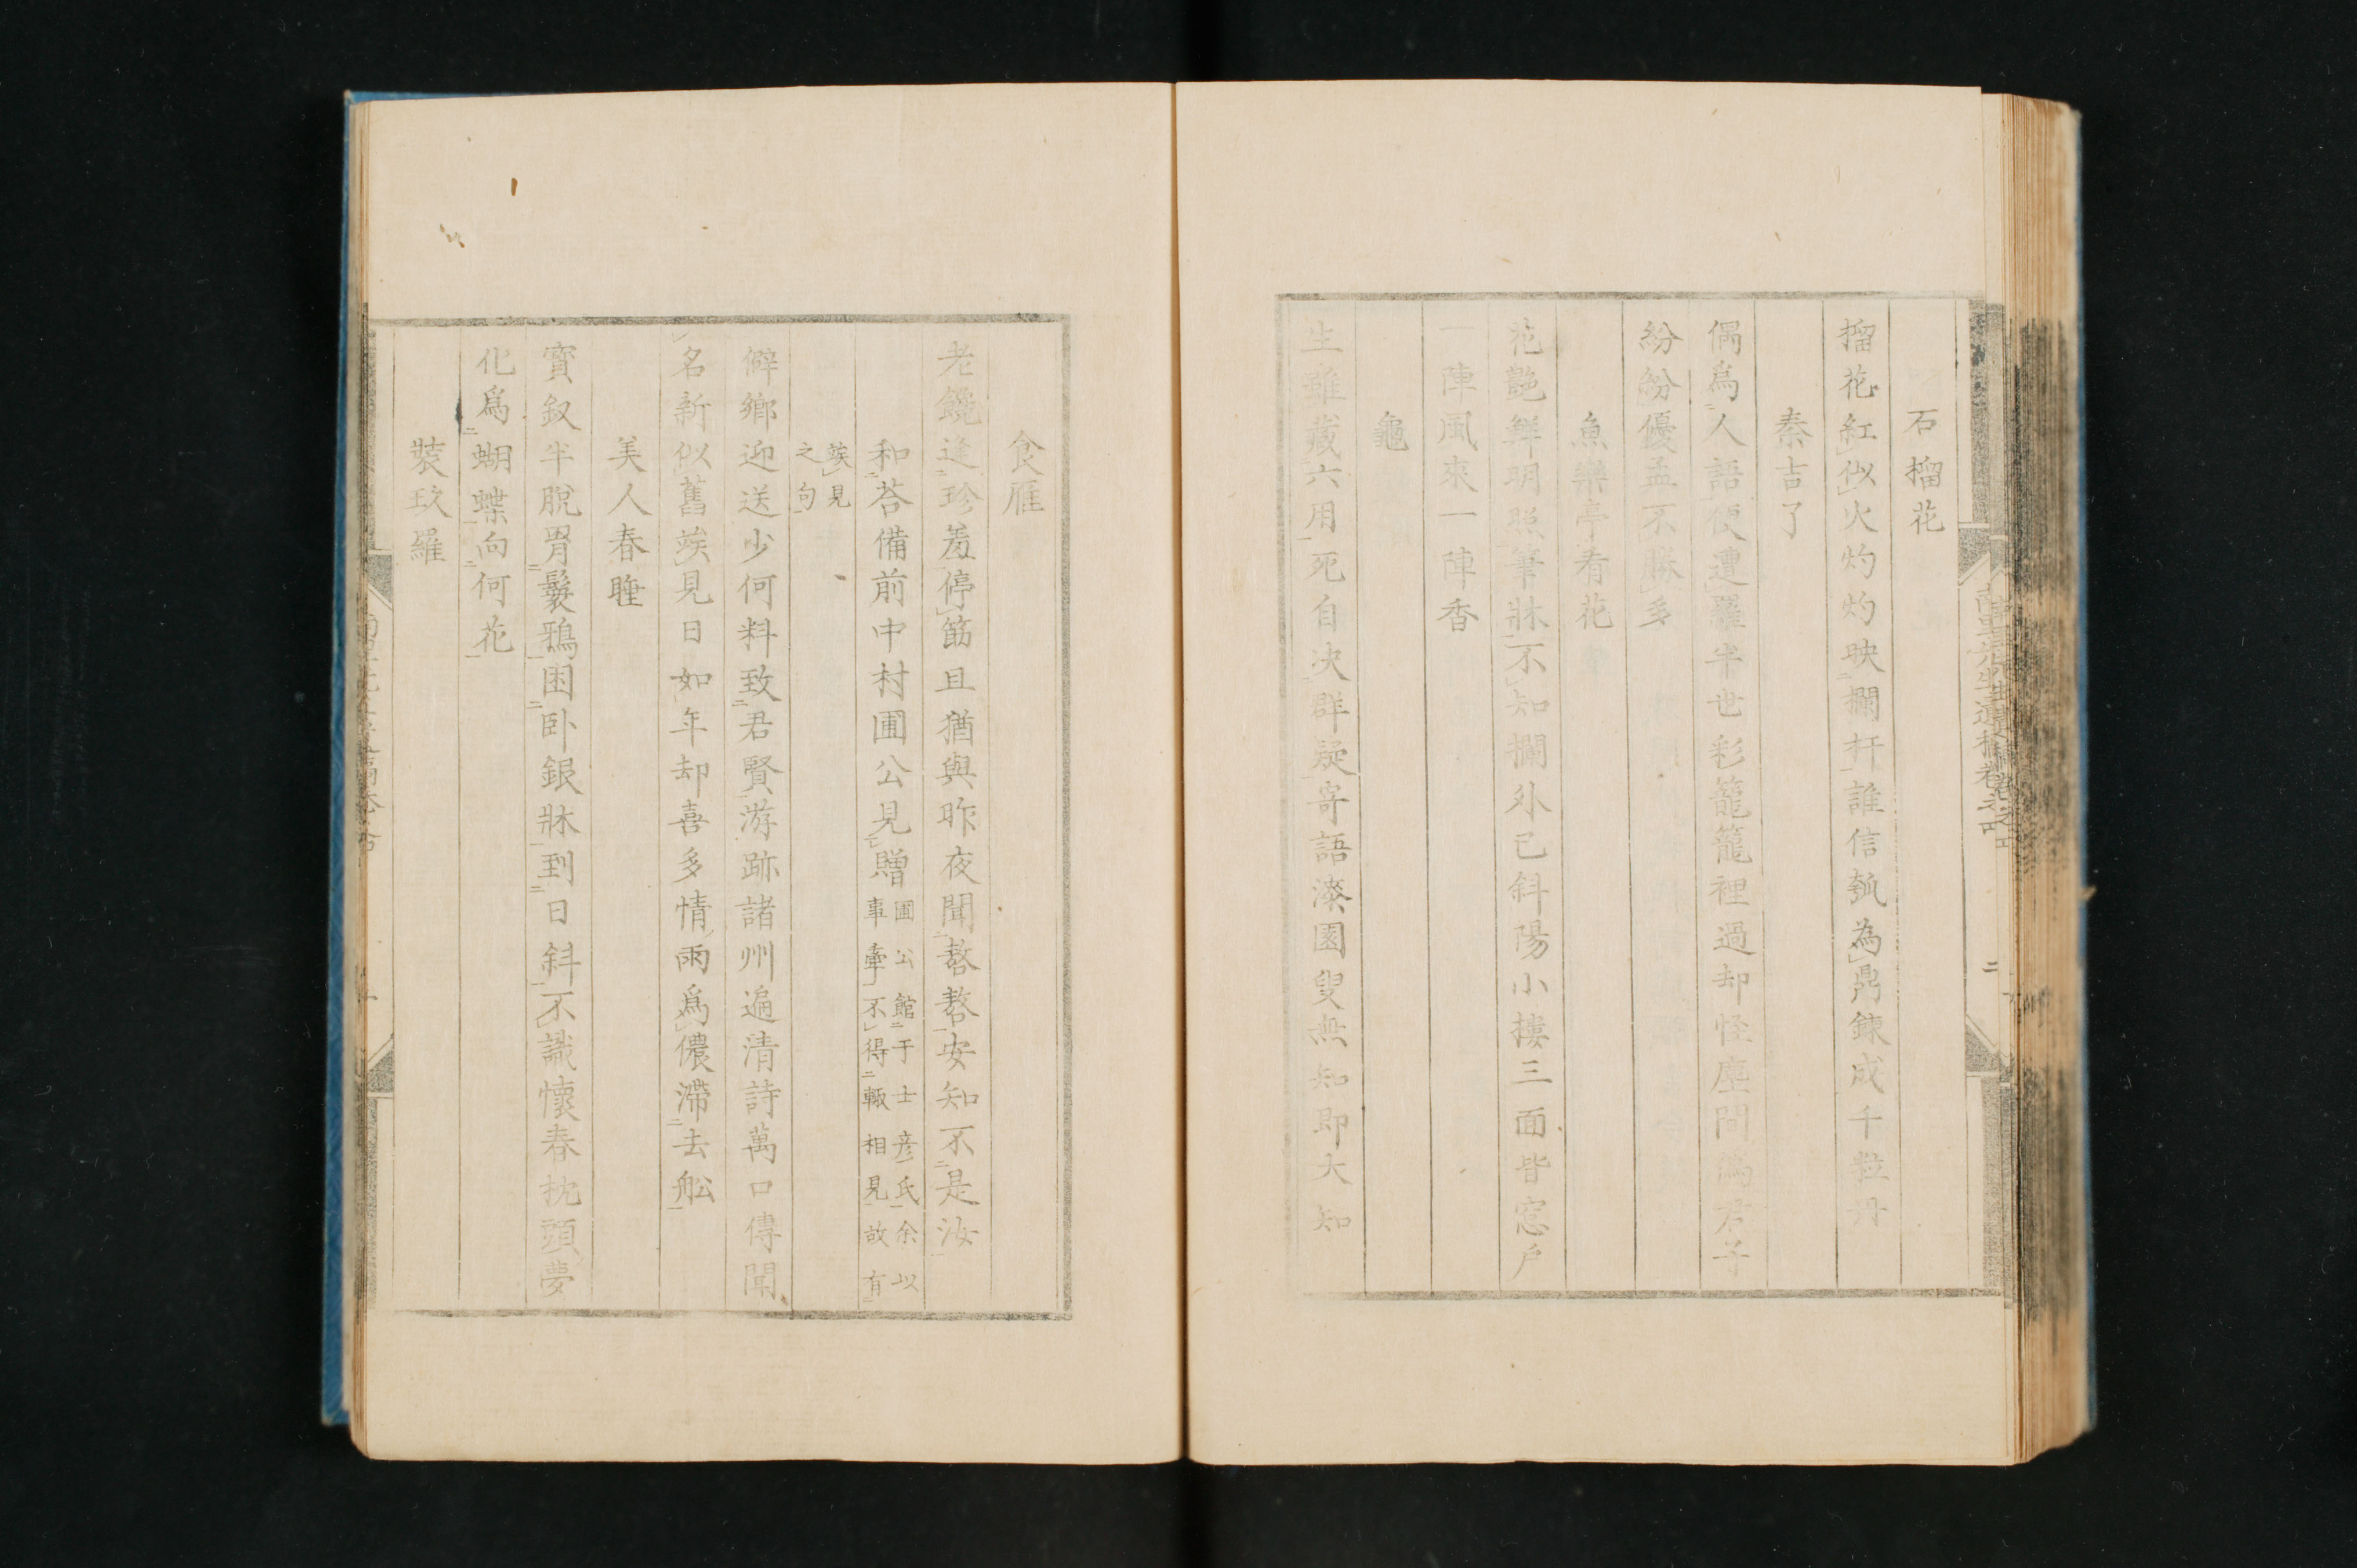 石榴花
榴花紅似火灼灼映欄杆誰信瓠為鼎鍊成千粒丹
秦吉了
偶爲人語便遭羅半世彩籠籠裡過却怪塵間爲君子
紛紛優孟不勝多
魚樂亭看花
花艷鮮明照筆牀不知欄外已斜陽小摟三面皆窓戶
一陣風來一陣香
龜
生雖藏六用死自决群疑寄語漆園叟無知即大知
食雁
老饕逢珍羞停筯且猶與昨夜聞嗸嗸安知不是汝
和荅備前中村圃公見贈圃公館于士彦氏余以
事牽不得輙相見故有
蓂見
之句
僻鄉迎送少何料致君賢游跡諸州遍清詩萬口傳聞
名新似舊蓂見日如年却喜多情雨爲儂滯去舩
美人春睡
寶釵半脫罥鬟鴉困卧銀牀到日斜不識懷春枕頭夢
化爲蝴蝶向何花
裝玫羅